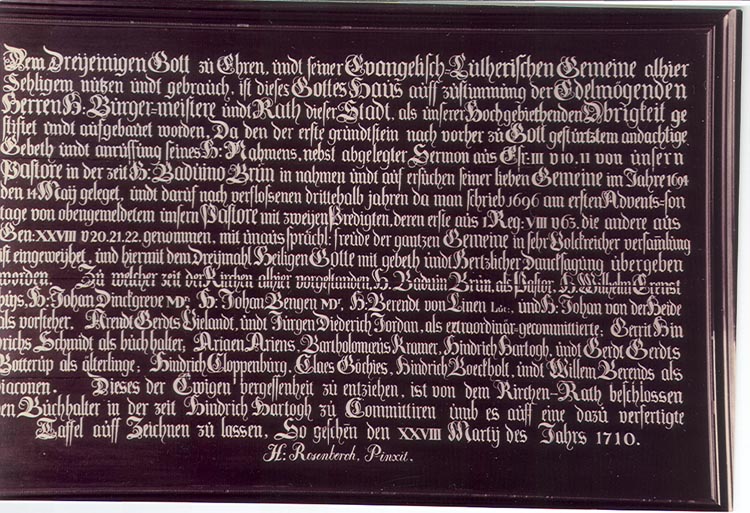 Dem Dreijeinigen Gott zů Ehren, ůndt seiner Evangelisch-Lůtherischen Gemeine alhier
Sehligem nůtzen ůndt gebraůch, ist dieses Gottes Haůs aůff zůstimmůng der Edelmögenden
Herren H: Bůrger-meistere ůndt Rath dieser Stadt, als ůnserer Hochgebiethenden Obrigkeit ge
stiftet ůndt aůfgebaůet worden. Da den der erste grůndtstein nach vorher zů Gott gestůrtztem andachtige
Gebeth ůndt anrůffůng seines H: Nahmens, nebst abgelegter Sermon aůs Esr: III v 10. 11 von ůnserm
Pastore in der zeit H: Badůino Brůn in nahmen ůndt aůf ersůchen seiner lieben Gemeine im Jahre 1694
den 14 Maij geleget, ůndt darůf nach verflossenen drittehalb jahren da man schrieb 1696 am ersten Advents-son
tage von obengemeldetem ůnserm Pastore mit zweijen Predigten, deren erste aůs 1 Reg: VIII v 63. die andere aůs
Gen: XXVIII v 20. 21. 22. genommen, mit ůnaůssprůchl: freůde der gantzen Gemeine in sehr Volckreicher versamlůng
ist eingeweijhet, ůnd hiermit dem Dreijmahl Heiligen Gotte mit gebeth ůndt Hertzlicher Dancksagůng ůbergeben
worden. Zů welcher zeit der Kirchen alhier vorgestanden, H. Badůin Brůn, als Pastor, H. Wilhelm Ernst
H: Johan Dinckgreve MDr. H: Johan Bengen MDr. H: Berendt von Linen ůnd H: Johan von der Heide
als vorsteher. Arendt Gerdts Vielandt, ůndt Jůrgen Diederich Jordan, als extraordinär-gecommittierte. Gerrit Hin
richs Schmidt als bůchhalter, Ariaen Ariens, Bartholomæůs Kramer, Hindrich Hartogh, ůndt Gerdt Gerdts
Botterůp als ůlterlinge; Hindrich Cloppenbůrg, Claes Göchjes, Hindrich Boeckholt, ůndt Willem Berends als
diaconen. Dieses der Ewigen vergessenheit zů entziehen, ist von dem Kirchen-Rath beschlossen
den Bůchhalter in der zeit Hindrich Hartogh zů Committiren ůmb es aůff eine dazů verfertigte
Taffel aůff Zeichnen zů lassen, So geschēn den XXVIII Martij des Jahrs 1710.
H: Rosenberch. Pinxit.